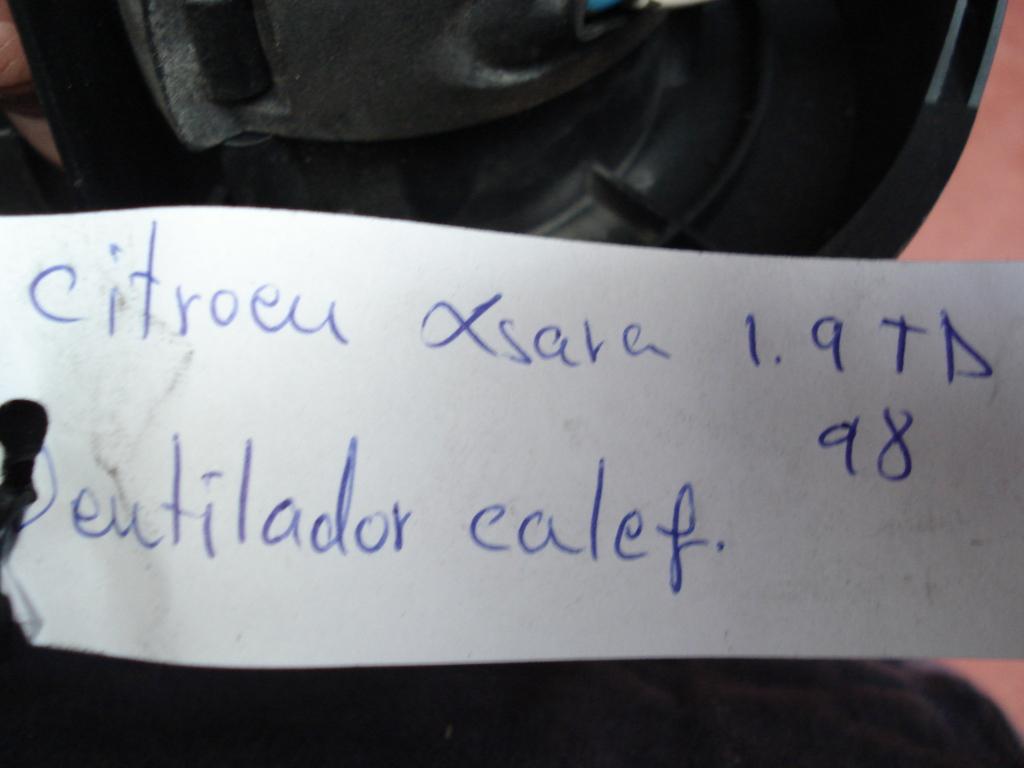 Citroen Xsara 1.9 TD
98
Ventilador calef.